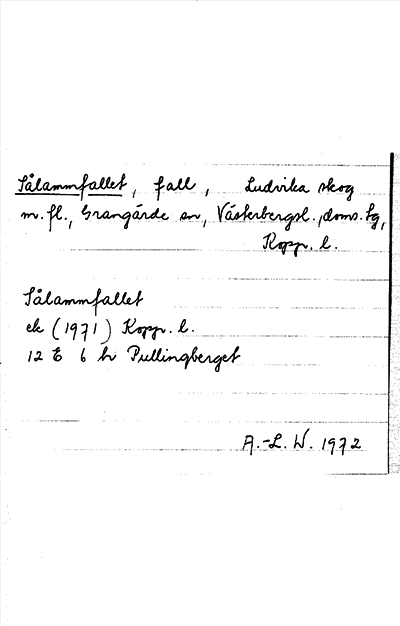 Sålammfallet, fall, Ludvika skog
m. fl., Grangärde sn, Västerbergsl. doms. tg,
Kopp. l.
Sålammfallet
ek (1971) Kopp. l.
12 E 6 h Pullingberget
A.-L. W. 1972